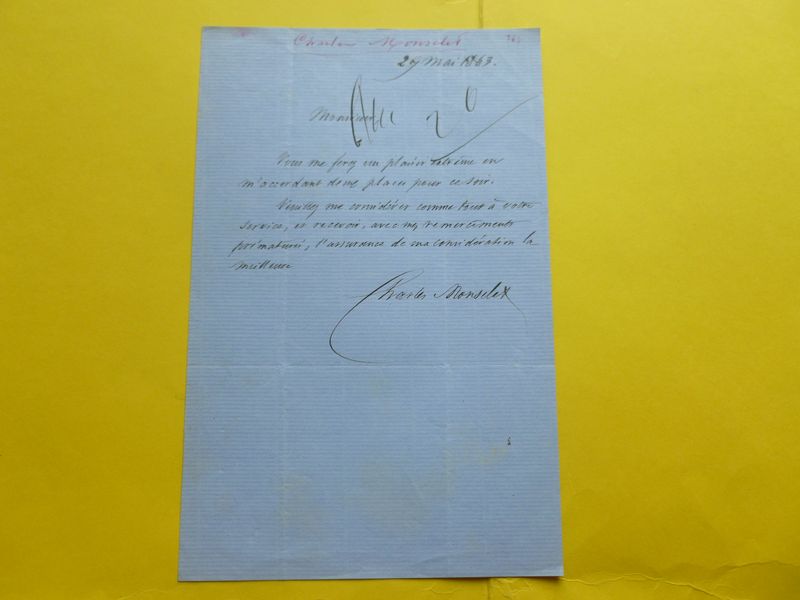 Charles Monselet
27 Mai 1863.
Monsieur
Vous me ferez un plaisir extrême en
m'accordant deux places pour ce soir.
Veuillez me considérer comme tout à votre
service, et recevoir, avec mes remerciments
prématurés, l'assurance de ma considération la
meilleure
Charles Monselet